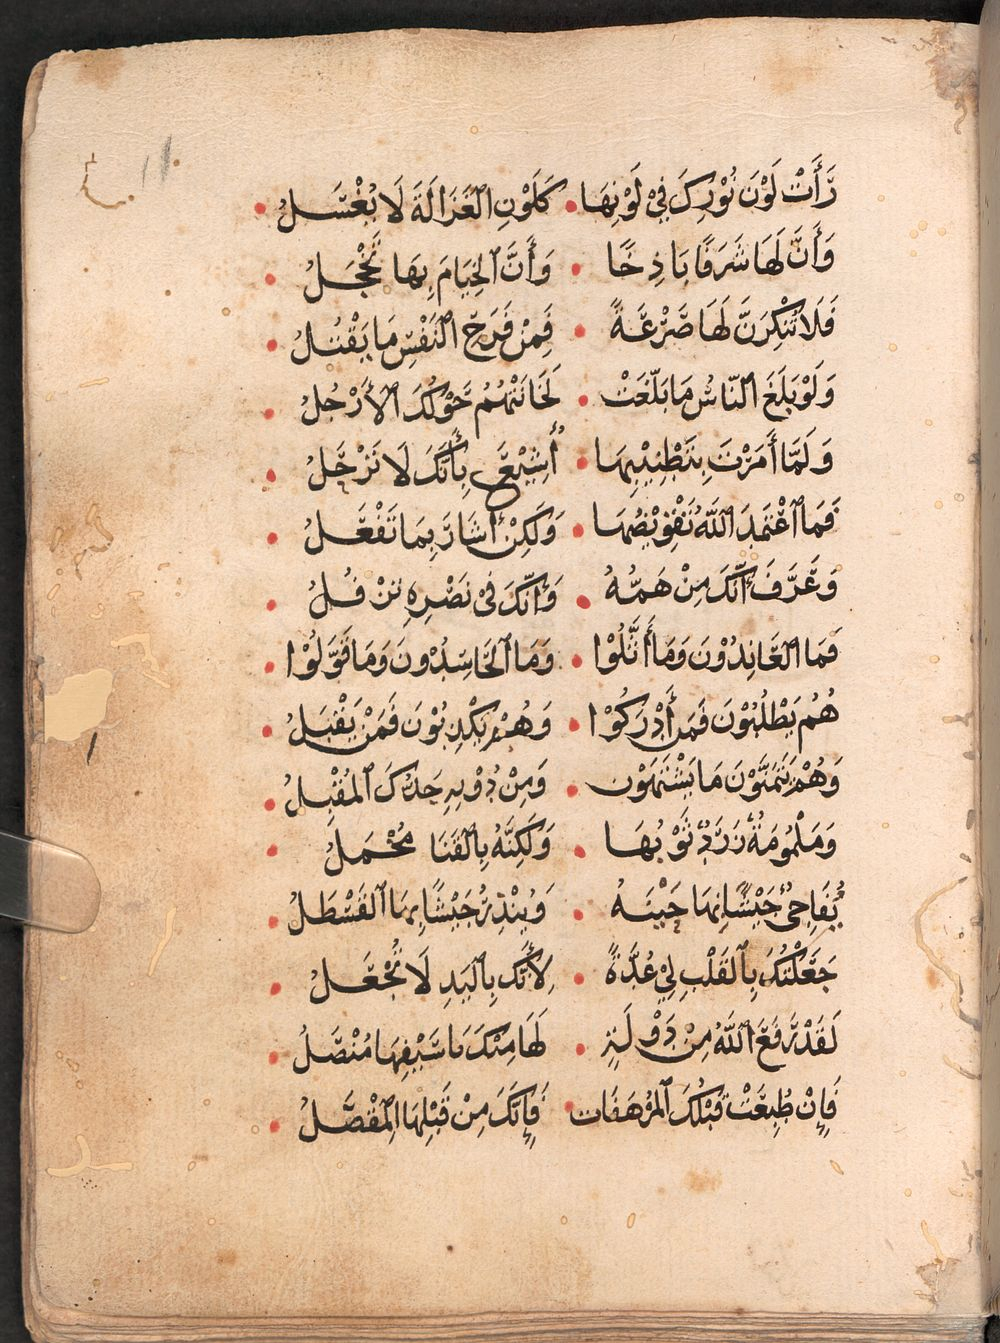 رَأَتْ لَوْنَ نُوْرِكَ فِيْ لَوْنِهَا • كَلَوْنِ الْغَزَالَةِ لَا يُغْسَلُ •
وَأَنَّ لَهَا شَرَفًا بَاذِخًا • وَأَنَّ الْخِيَامَ بِهَا تَخْجَلُ •
فَلَا تُنْكِرَنَّ لَهَا صَرْعَةً • فَمِنْ فَرَحِ النَّفْسِ مَا يَقْتُلُ •
وَلَوْ بَلَغَ النَّاسُ مَا بَلَّغَتْ • لَخَانَتْهُمُ حَوْلَكَ الْأَرْجُلُ •
وَلَمَّا أَمَرْتَ بِتَطْنِيْبِهَا • أُشِيْعَ بِأَنَّكَ لَا تَرْحَلُ •
فَمَا اعْتَمَدَ اللّٰهُ تَقْوِيْضَهَا • وَلَكِنْ أَشَارَ بِمَا تَفْعَلُ •
وَعَرَّفَ أَنَّكَ مِنْ هَمِّهُ • وَأَنَّكَ فِي نَصْرِهِ تَرْفُلُ •
فَمَا الْعَانِدُوْنَ وَمَا أَثَّلُوْا • وَمَا الْحَاسِدُوْنَ وَمَا قَوَّلُوْا •
هُمُ يَطْلُبُوْنَ فَمَنْ أَدْرَكُوْا • وَهُمْ يَكْذِبُوْنَ فَمَنْ يَقْبَلُ •
وَهُمْ يَتَمَنَّوْنَ مَا يَشْتَهَوْن • وَمِنْ دُوْنِهِ جَدُّكَ الْمُقْبِلُ •
وَمَلْمُوْمَةٌ زَرَدٌ ثَوْبُهَا • وَلَكِنَّهُ بِالْقَنَا مُخْمَلُ •
يُفَاجِئُ جَيْشًا بِهَا حَيْنُهُ • وَيُنْذِرُ جَيْشًا بِهَا الْقَسْطَلُ •
جَعَلْتُكَ بِالْقَلْبِ لِيْ عُدَّةً • لِأَنَّكَ بِالْيَدِ لَا تُجْعَلُ •
لَقَدْ رَفَعَ اللّٰهُ مِنْ دَوْلَةٍ • لَهَا مِنْكَ يَا سَيْفَهَا مُنْصَلُ •
فَإِنْ طُبِعَتْ قَبْلَكَ الْمُرْهَفَات • فَإِنَّكَ مِنْ قَبْلِهَا الْمِفْصَلُ •